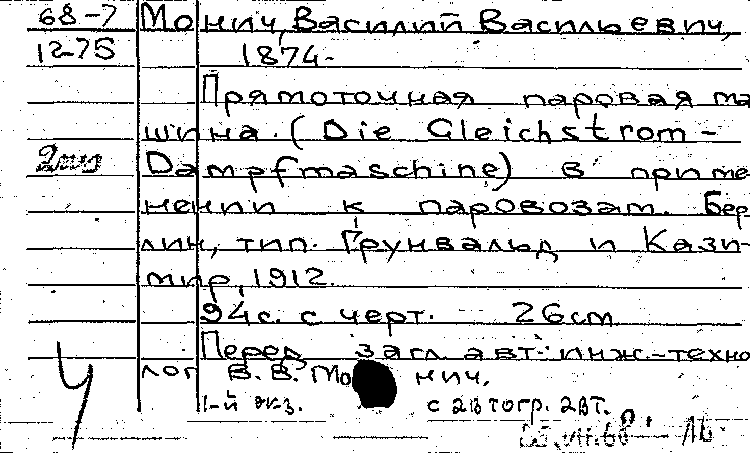 68-7 Монич, Василий Васильевич,
12-75 1874-
Прямоточная паровая ма
шина. (Die Gleichstrom-
Dampfmaschine) в приме
нении к паровозам. Бер-
лин, тип. Грунвальд и Кази-
мир, 1912.
94с. с черт. 26см
Перед загл. авт.: инж.-техно
лог В.В. Монич.
1-й экз. с автогр. авт.